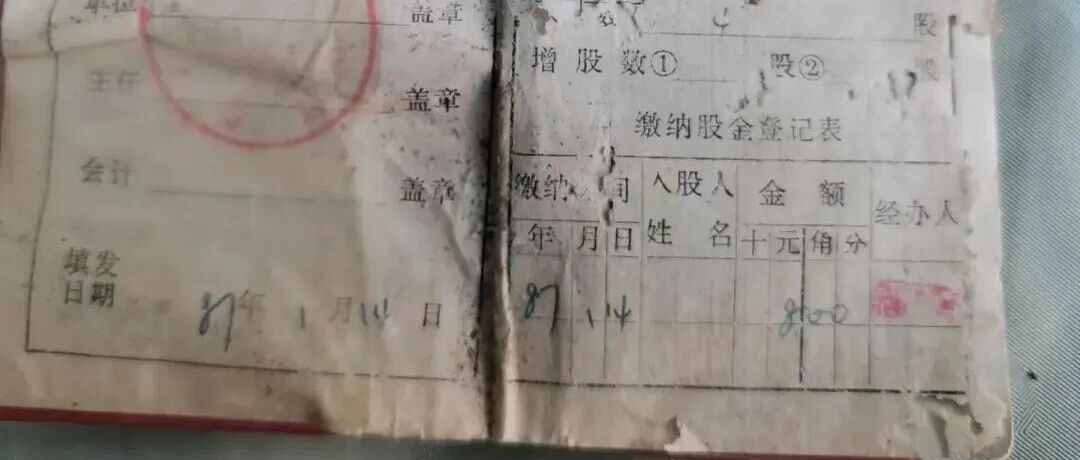 单位 盖章
主任 盖章
会计 盖章
填发
日期 87年 1月14日
数 4 股
增股数① 股② 股
缴纳股金登记表
缴纳 间 入股人 金额 经办人
年 月 日 姓名 十元角分
87 1 14 800